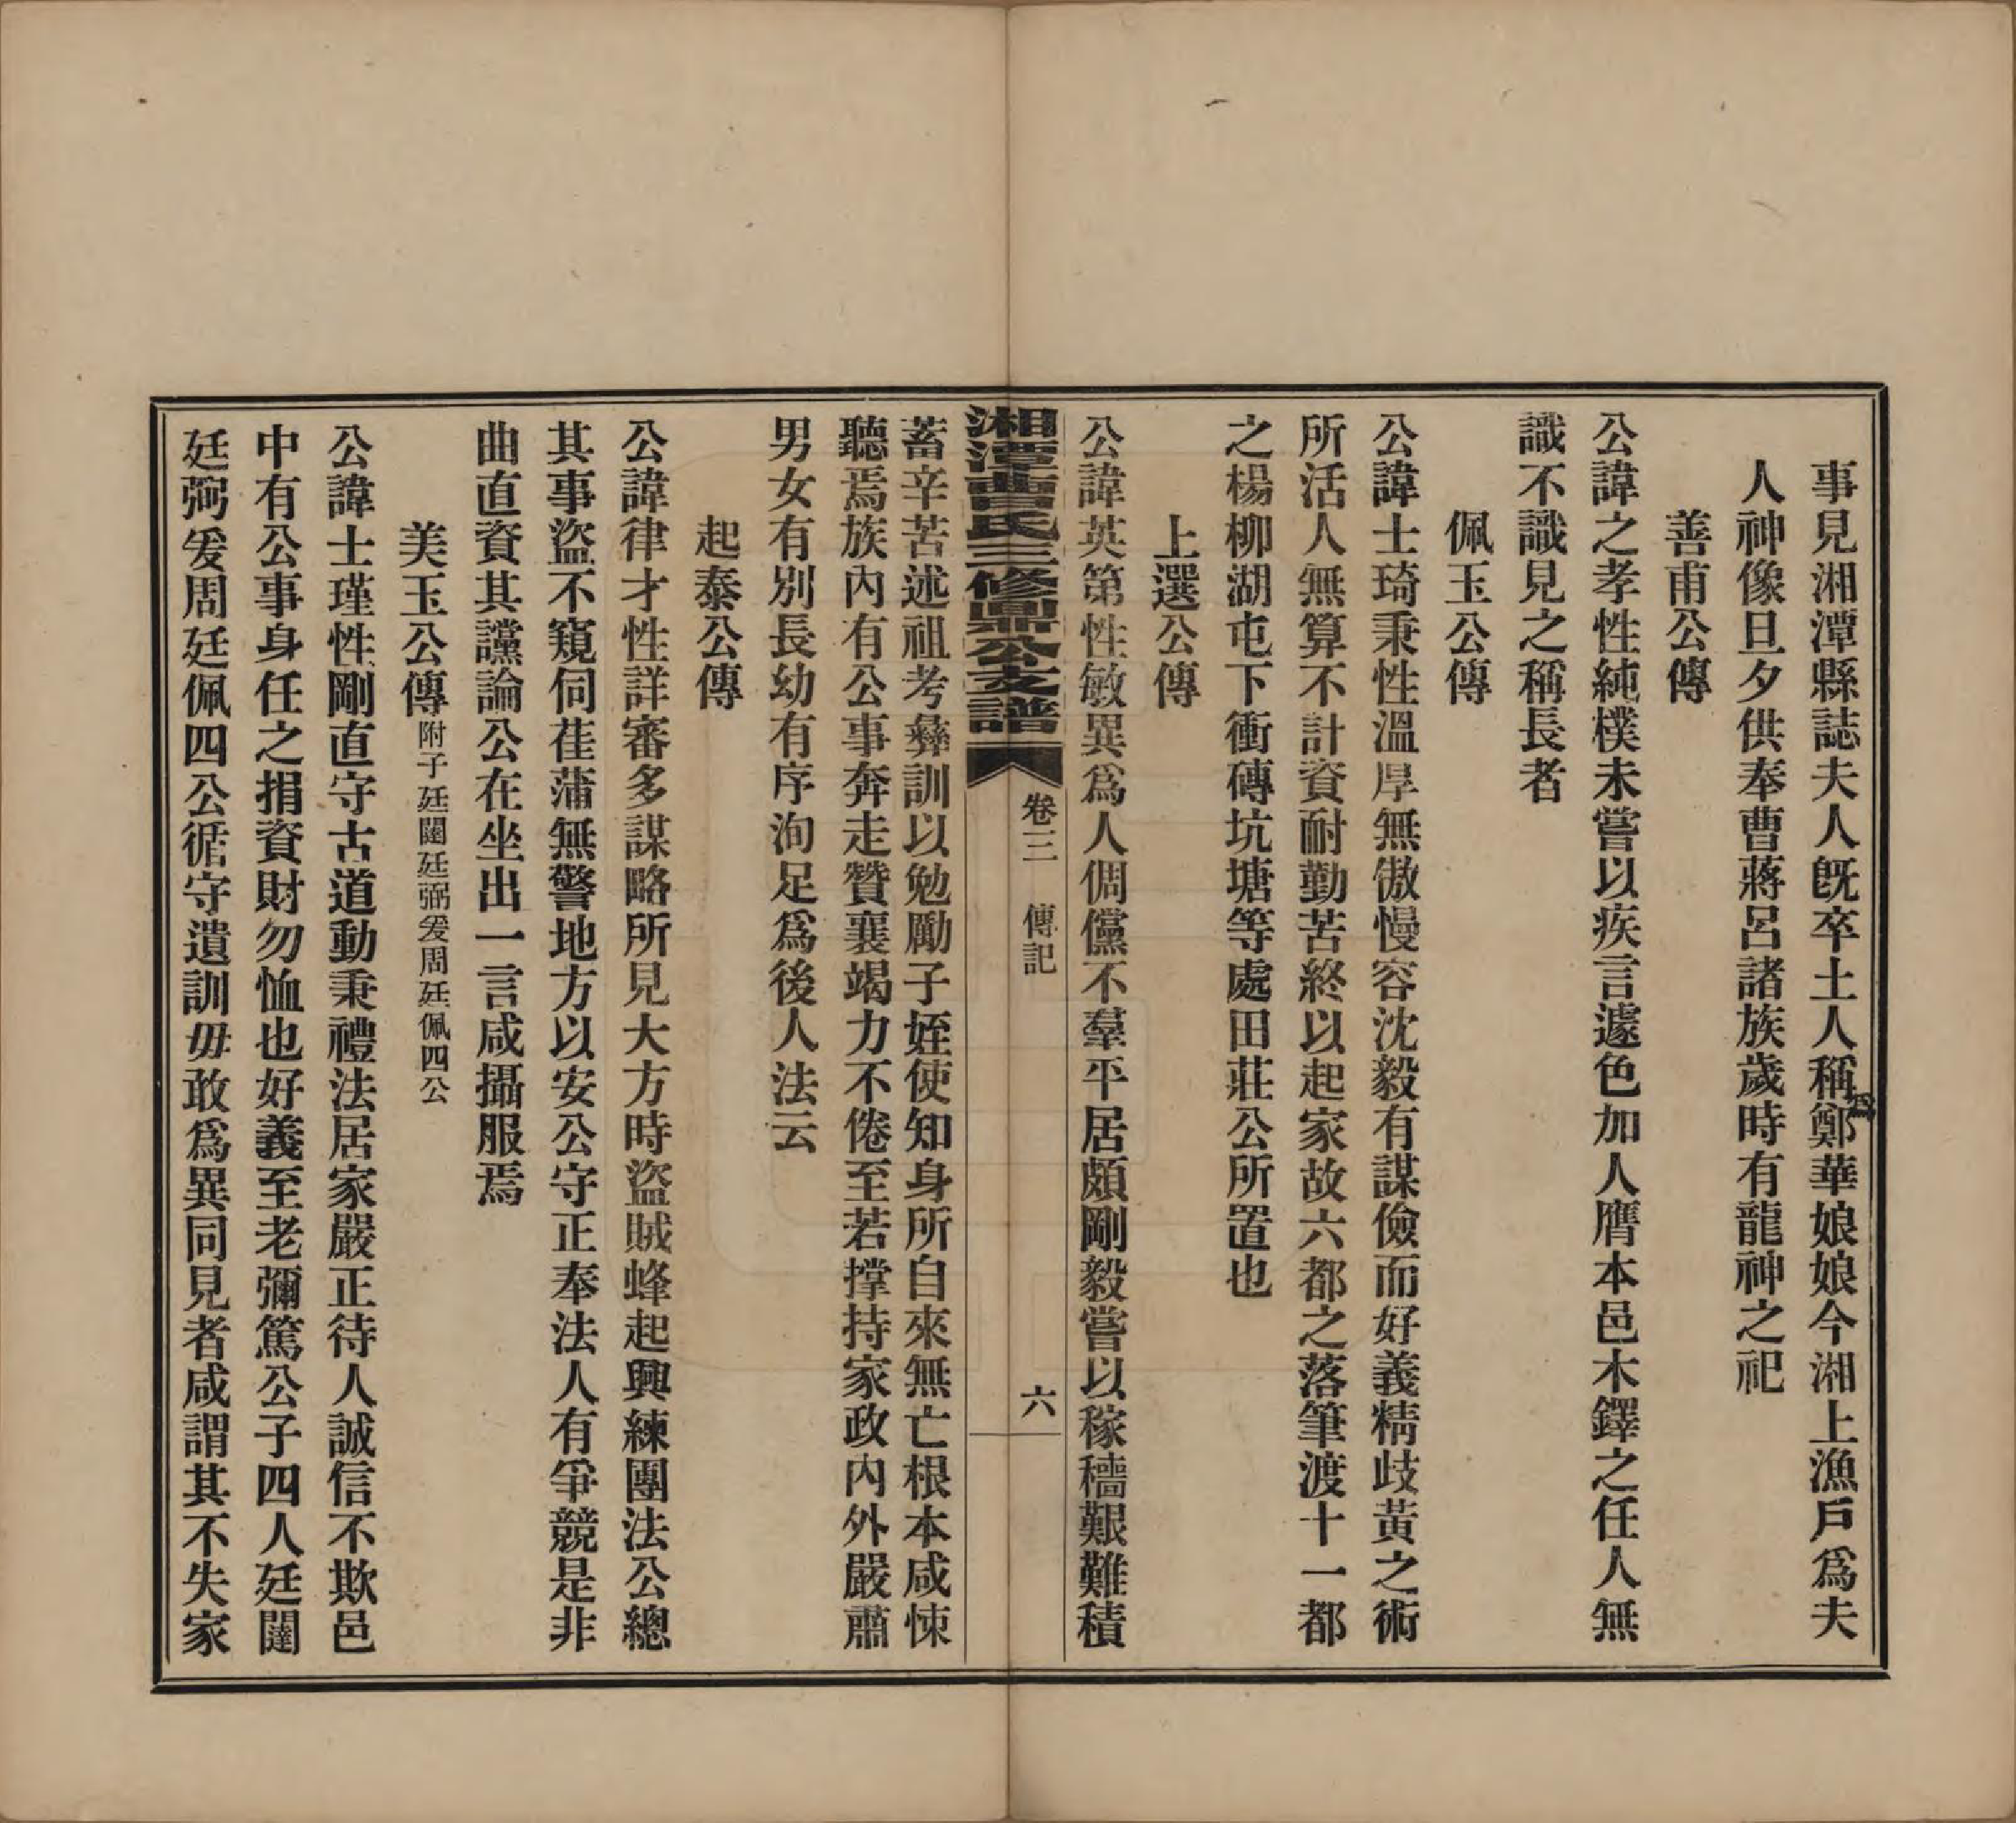 事見湘潭縣誌夫人既卒土人稱爲鄭華娘娘今湘上漁戶爲夫
人神像旦夕供奉曹蔣呂諸族歲時有龍神之祀
善甫公傳
公諱之孝性純樸未嘗以疾言遽色加人膺本邑木鐸之任人無
識不識見之稱長者
佩玉公傳
公諱士琦秉性溫厚無傲慢容沈毅有謀儉而好義精歧黃之術
所活人無算不計資耐勤苦終以起家故六都之落筆渡十一都
之楊柳湖屯下衝磚坑塘等處田莊公所置也
上選公傳
公諱英第性敏異爲人倜儻不羣平居頗剛毅嘗以稼穡艱難積
湘潭曹氏三修鼎公支譜
卷三
傳記
六
蓄辛苦述祖考彝訓以勉勵子姪使知身所自來無亡根本咸悚
聽焉族內有公事奔走贊襄竭力不倦至若撑持家政內外嚴肅
男女有別長幼有序洵足爲後人法云
起泰公傳
公諱律才性詳審多謀略所見大方時盜賊蜂起興練團法公總
其事盜不窺伺萑蒲無警地方以安公守正奉法人有爭競是非
曲直資其讜論公在坐出一言咸攝服焉
美玉公傳附子廷闥廷弼爰周廷佩四公
公諱士瑾性剛直守古道動秉禮法居家嚴正待人誠信不欺邑
中有公事身任之捐資財勿恤也好義至老彌篤公子四人廷闥
廷弼爰周廷佩四公循守遺訓毋敢爲異同見者咸謂其不失家